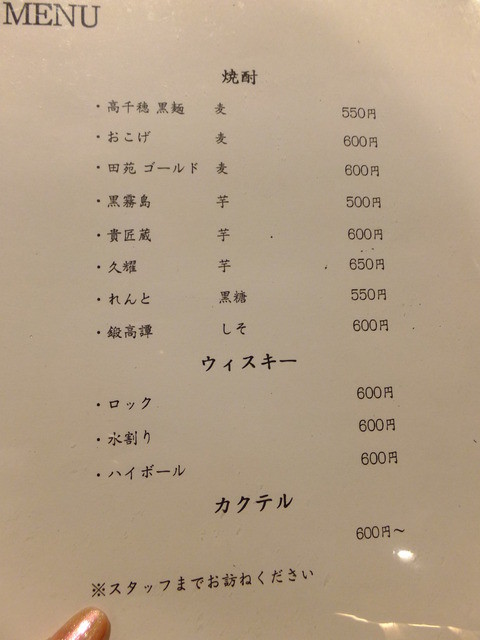 MENU
焼酎
・高千穂 黒麹 麦 550円
・おこげ 麦 600円
・田苑 ゴールド 麦 600円
・黒霧島 芋 500円
・貴匠蔵 芋 600円
・久耀 芋 650円
・れんと 黒糖 550円
・鍛高譚 しそ 600円
ウィスキー
・ロック 600円
・水割り 600円
・ハイボール 600円
カクテル
600円～
※スタッフまでお訪ねください